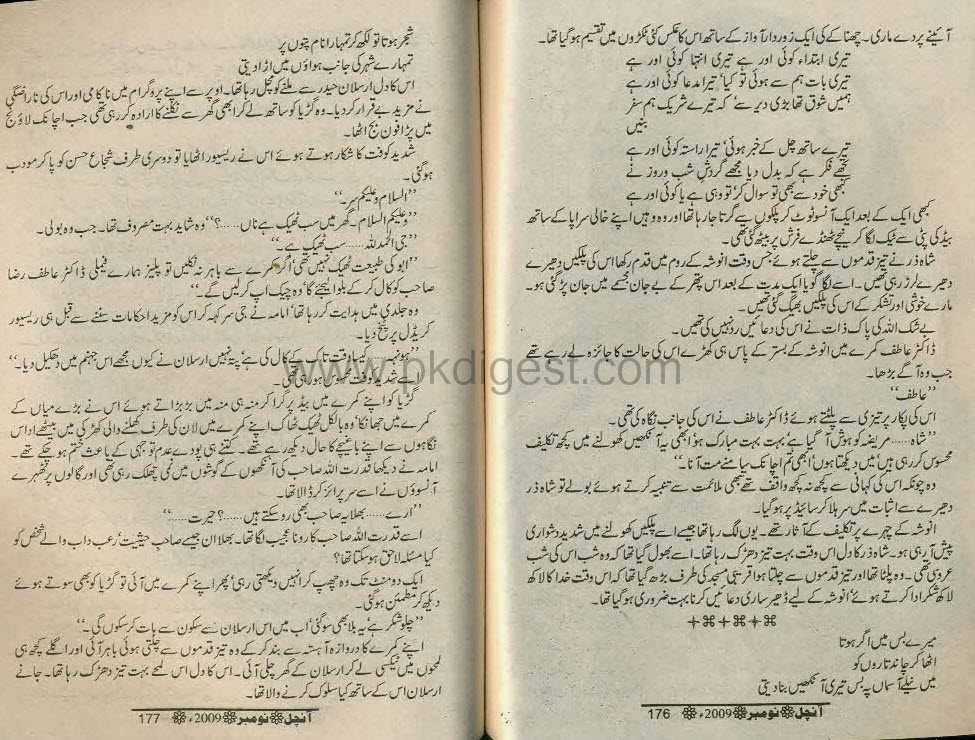 آئینے پر دے ماری۔ چھناکے کی ایک زور دار آواز کے ساتھ اس کا عکس کئی ٹکڑوں میں تقسیم ہو گیا تھا۔
تیری ابتداء کوئی اور ہے تیری انتہا کوئی اور ہے
تیری بات ہم سے ہوئی تو کیا' تیرا مدعا کوئی اور ہے
ہمیں شوق تھا بڑی دیر سے' کہ تیرے شریک ہم سفر
بنیں
تیرے ساتھ چل کے خبر ہوئی' تیرا راستہ کوئی اور ہے
تجھے فکر ہے کہ بدل دیا مجھے گردش شب و روز نے
کبھی خود سے بھی تو سوال کر' تو وہی ہے یا کوئی اور ہے
کبھی ایک کے بعد ایک آنسو ٹوٹ کر پلکوں سے گرتا جا رہا تھا اور وہ وہیں اپنے خالی سراپا کے ساتھ
بیڈ کی پٹی سے ٹیک لگا کر نیچے ٹھنڈے فرش پر بیٹھ گئی تھی۔
شاہ ذر نے تیز قدموں سے چلتے ہوئے جس وقت انوشہ کے روم میں قدم رکھا اس کی پلکیں دھیرے
دھیرے لرز رہی تھیں۔ اسے لگا گویا ایک مدت کے بعد اس پتھر کے بے جان مجسمے میں جان پڑ گئی ہو۔
مارے خوشی اور تشکر کے اس کی پلکیں بھیگ گئی تھیں۔
بے شک اللہ کی پاک ذات نے اس کی دعائیں رد نہیں کی تھیں۔
ڈاکٹر عاطف کمرے میں انوشہ کے بستر کے پاس ہی کھڑے اس کی حالت کا جائزہ لے رہے تھے
جب وہ آگے بڑھا۔
''عاطف''
اس کی پکار پر تیزی سے پلٹتے ہوئے ڈاکٹر عاطف نے اس کی جانب نگاہ کی تھی۔
''شاہ...... مریضہ کو ہوش آ گیا ہے' بہت بہت مبارک ہو' ابھی یہ آنکھیں کھولنے میں کچھ تکلیف
محسوس کر رہی ہیں' میں دیکھتا ہوں' ابھی تم اچانک سامنے مت آنا۔''
وہ چونکہ اس کی کہانی سے کچھ نہ کچھ واقف تھے تبھی ملائمت سے تنبیہہ کرتے ہوئے بولے تو شاہ ذر
دھیرے سے اثبات میں سر ہلا کر سائیڈ پر ہو گیا۔
انوشہ کے چہرے پر تکلیف کے آثار تھے۔ یوں لگ رہا تھا جیسے اسے پلکیں کھولنے میں شدید دشواری
پیش آ رہی ہو۔ شاہ ذر کا دل اس وقت بہت تیز دھڑک رہا تھا۔ اسے بھول گیا تھا کہ وہ شب اس کی شب
عروسی تھی۔ وہ پلٹا تھا اور تیز قدموں سے چلتا ہوا قریبی مسجد کی طرف بڑھ گیا تھا کہ اس وقت خدا کا لاکھ
لاکھ شکر ادا کرتے ہوئے' انوشہ کے لیے ڈھیر ساری دعائیں کرنا بہت ضروری ہو گیا تھا۔
میرے بس میں اگر ہوتا
اٹھا کر چاند تاروں کو
میں نیلے آسماں پہ بس تیری آنکھیں بنا دیتی
آنچل نومبر 2009ء 176
شجر ہوتا تو لکھ کر تمہارا نام پتوں پر
تمہارے شہر کی جانب ہواؤں میں اڑا دیتی
اس کا دل ارسلان حیدر سے ملنے کو مچل رہا تھا۔ اوپر سے اپنے پروگرام میں ناکامی اور اس کی ناراضگی
نے مزید بے قرار کر دیا۔ وہ گڑیا کو ساتھ لے کر ابھی گھر سے نکلنے کا ارادہ کر رہی تھی جب اچانک لاؤنج
میں پڑا فون بج اٹھا۔
شدید کوفت کا شکار ہوتے ہوئے اس نے ریسیور اٹھایا تو دوسری طرف شجاع حسن کو پا کر مودب
ہو گئی۔
''السلام و علیکم سر۔''
''وعلیکم السلام۔ گھر میں سب ٹھیک ہے ناں......؟'' وہ شاید بہت مصروف تھا۔ جب وہ بولی۔
''جی الحمدللہ...... سب ٹھیک ہے۔''
''ابو کی طبیعت ٹھیک نہیں تھی' اگر کمرے سے باہر نہ نکلیں تو پلیز ہمارے فیملی ڈاکٹر عاطف رضا
صاحب کو کال کر کے بلوا لیجئے گا' وہ چیک اپ کر لیں گے۔''
وہ جلدی میں ہدایت کر رہا تھا' امامہ نے جی سر کہہ کر اس کو مزید احکامات سننے سے قبل ہی ریسیور
کریڈل پر پٹخ دیا۔
''ہونہہ...... کیسا وقت تاک کے کال کی ہے' پتہ نہیں ارسلان نے کیوں مجھے اس جہنم میں دھکیل دیا۔''
اسے شدید کوفت محسوس ہو رہی تھی۔
گڑیا کو اپنے کمرے میں بیڈ پر گرا کر منہ ہی منہ میں بڑبڑاتے ہوئے اس نے بڑے میاں کے
کمرے میں جھانکا' وہ بالکل ٹھیک ٹھاک اپنے کمرے میں لان کی طرف کھلنے والی کھڑکی میں بیٹھے اداس
نگاہوں سے اپنے باغیچے کا حال دیکھ رہے تھے۔ کتنے ہی پودے عدم توجہی کے باعث ختم ہو چکے تھے۔
امامہ نے دیکھا قدرت اللہ صاحب کی آنکھوں کے گوشوں میں نمی چھلک رہی تھی اور گالوں پر ٹھہرے
آنسوؤں نے اسے سرپرائز کر ڈالا تھا۔
''ارے...... بھلا یہ صاحب بھی رو سکتے ہیں......؟ حیرت......''
اسے قدرت اللہ صاحب کا رونا عجیب لگا تھا۔ بھلا ان جیسے صاحب حیثیت' رعب داب والے شخص کو
کیا مسئلہ لاحق ہو سکتا تھا؟
ایک دو منٹ تک وہ چھپ کر انہیں دیکھتی رہی' پھر اپنے کمرے میں آئی تو گڑیا کو بھی سوتے ہوئے
دیکھ کر مطمئن ہو گئی۔
''چلو شکر ہے' یہ بلا بھی سو گئی' اب میں اس ارسلان سے سکون سے بات کر سکوں گی۔''
اپنے کمرے کا دروازہ آہستہ سے بند کر کے وہ تیز قدموں سے چلتی ہوئی باہر آئی اور اگلے کچھ ہی
لمحوں میں ٹیکسی لے کر ارسلان کے گھر چلی آئی۔ اس کا دل اس لمحے بہت تیز دھڑک رہا تھا۔ جانے
ارسلان اس کے ساتھ کیا سلوک کرنے والا تھا۔
آنچل نومبر 2009ء 177
www.pkdigest.com